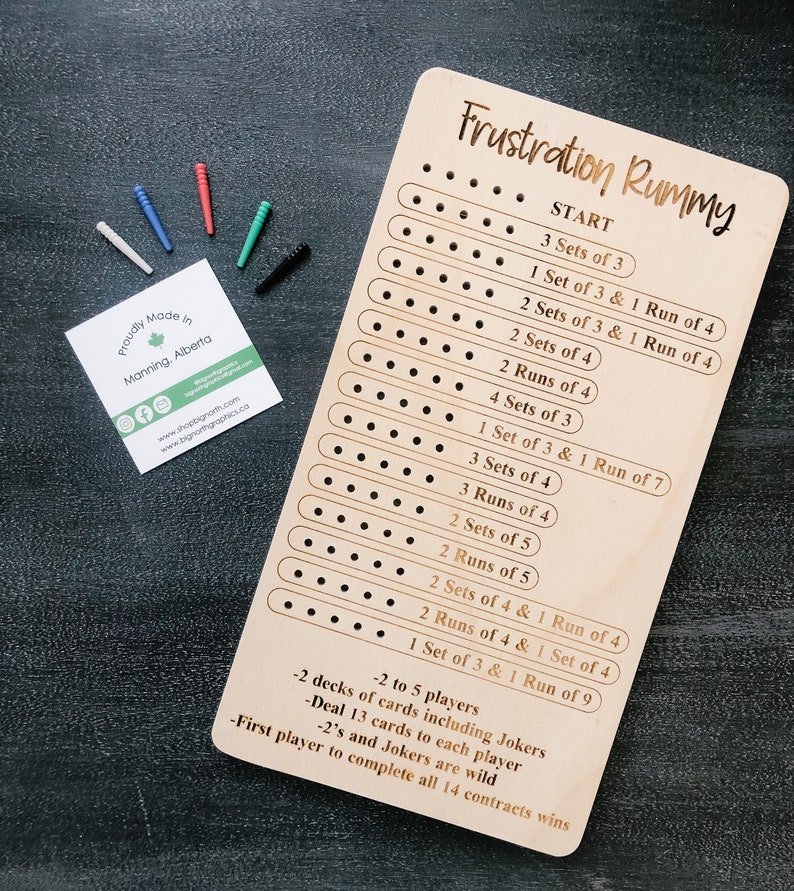 Frustration Rummy
START
3 Sets of 3
1 Set of 3 & 1 Run of 4
2 Sets of 3 & 1 Run of 4
2 Sets of 4
2 Runs of 4
4 Sets of 3
1 Set of 3 & 1 Run of 7
3 Sets of 4
3 Runs of 4
2 Sets of 5
2 Runs of 5
2 Sets of 4 & 1 Run of 4
2 Runs of 4 & 1 Set of 4
1 Set of 3 & 1 Run of 9
-2 to 5 players
-2 decks of cards including Jokers
-Deal 13 cards to each player
-2's and Jokers are wild
-First player to complete all 14 contracts wins
Proudly Made In
Manning, Alberta
@bignorthgraphics
bignorthgraphics@gmail.com
www.shopbignorth.com
www.bignorthgraphics.ca